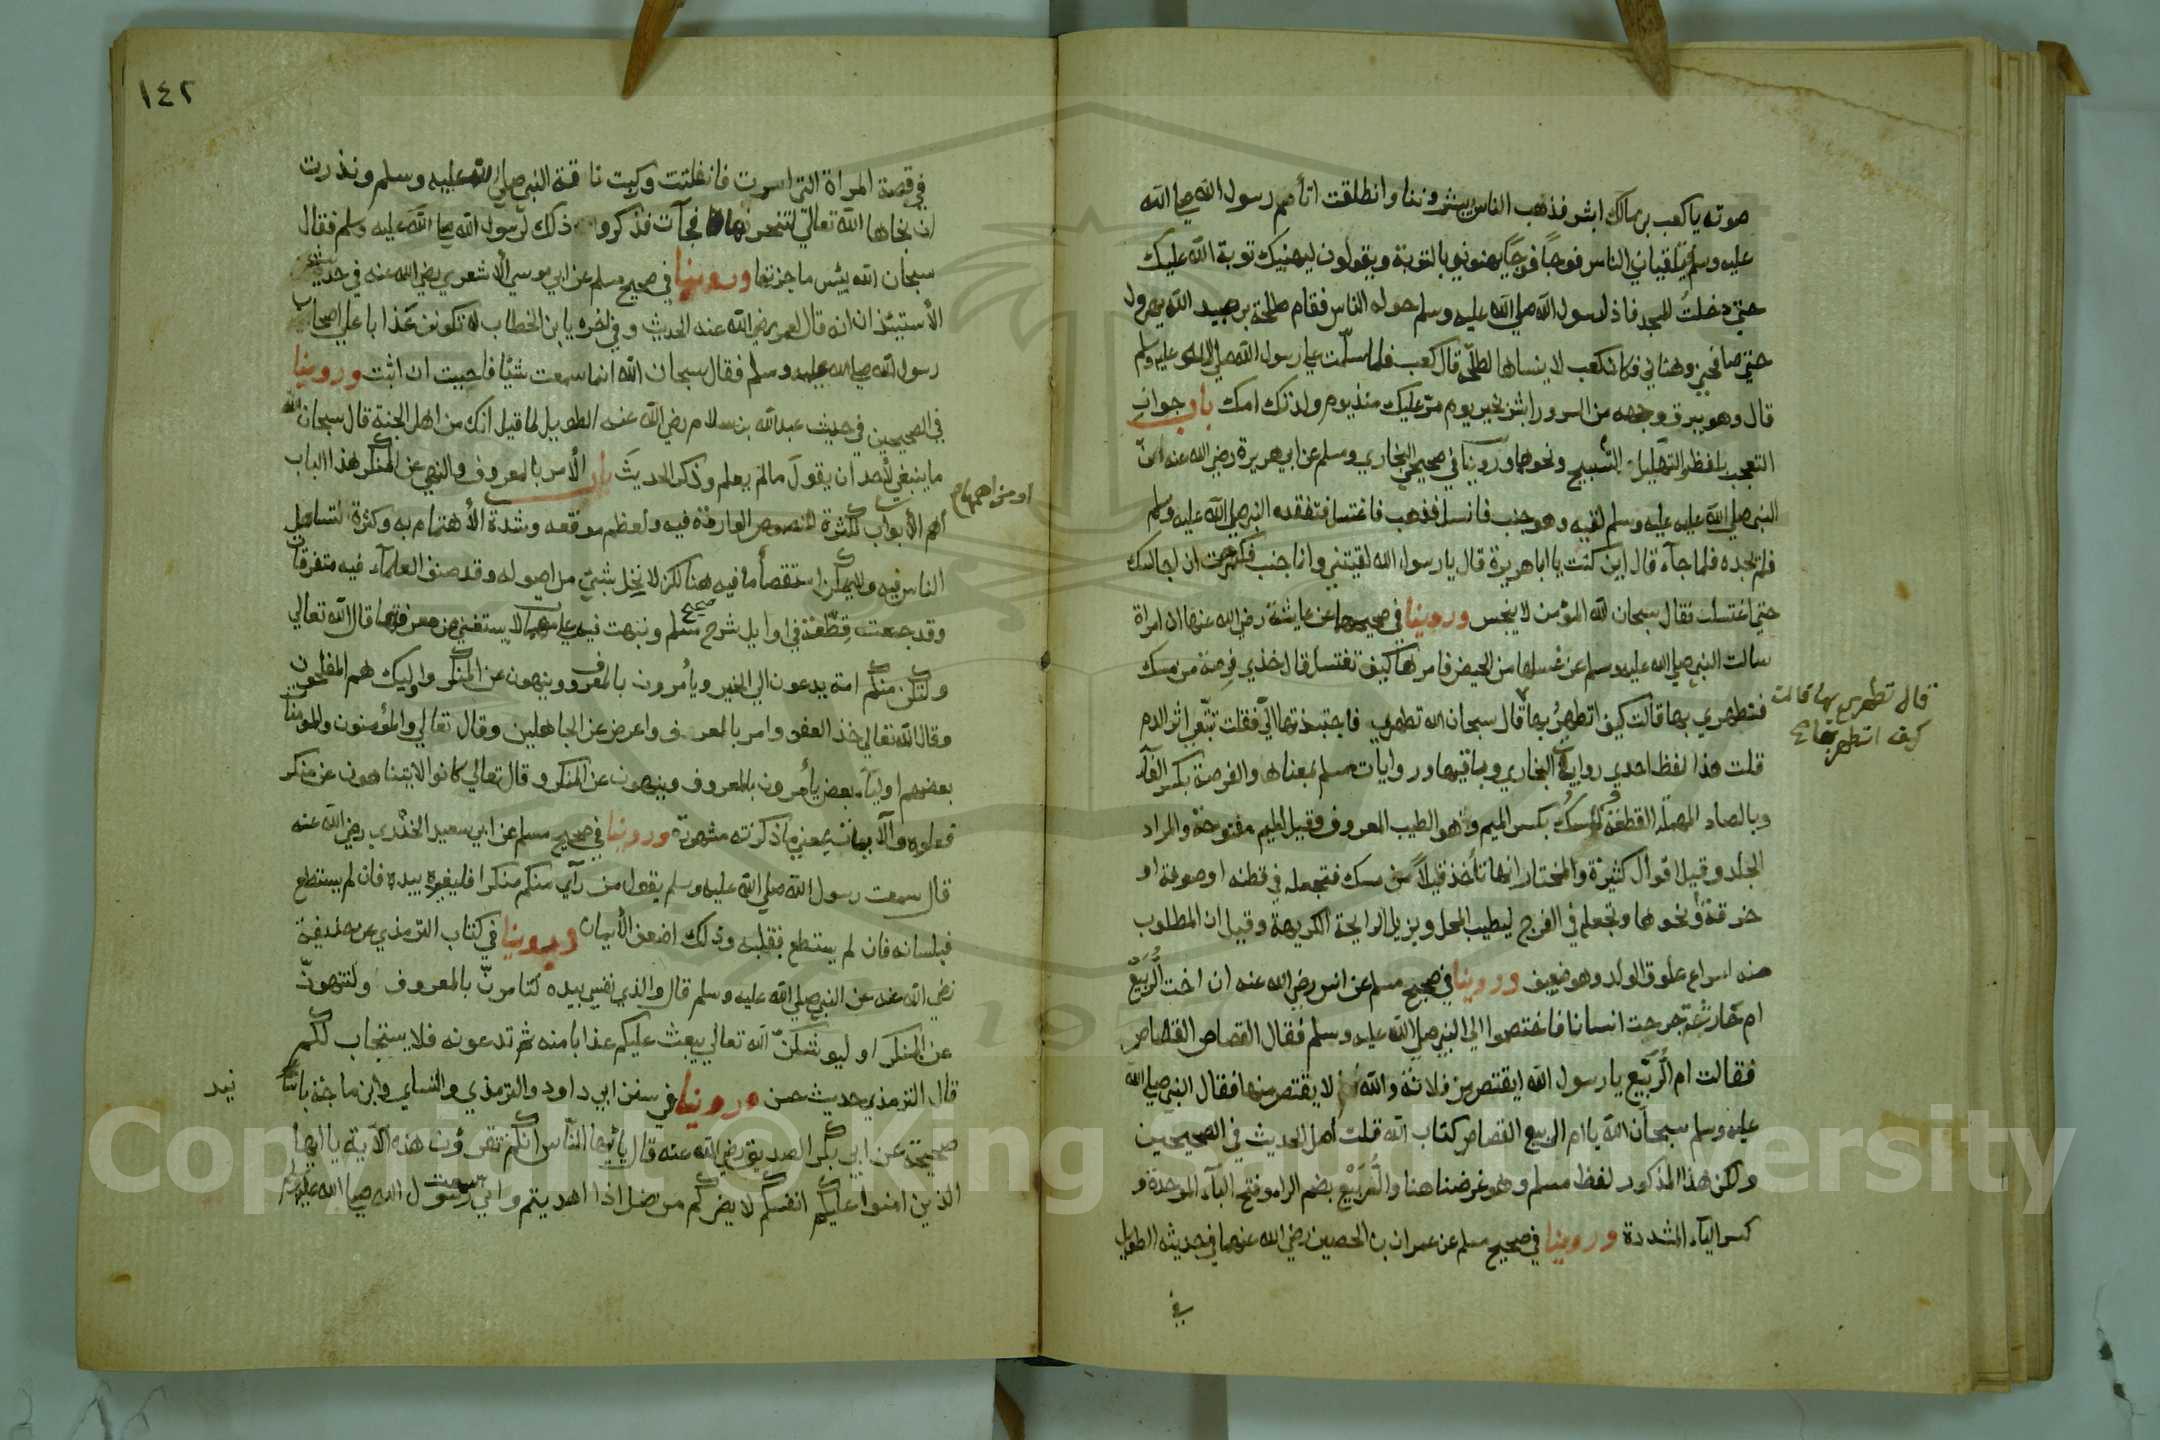 صوته يا كعب بن مالك ابشر فذهب الناس يبشروننا وانطلقت اتأمم رسول الله صلى الله
عليه وسلم يتلقاني الناس فوجاً فوجاً يهنوني بالتوبة ويقولون ليهنيك توبة الله عليك
حتى دخلت المسجد فاذا رسول الله صلى الله عليه وسلم حوله الناس فقام طلحة بن عبيد الله يهرول
حتى صافحني وهناني فكان كعب لا ينساها لطلحة قال كعب فلما سلمت على رسول الله صلى الله عليه وسلم
قال وهو يبرق وجهه من السرور ابشر بخير يوم مر عليك منذ يوم ولدتك امك باب جواز
التعجب بلفظ التهليل والتسبيح ونحوهما وروينا في صحيحي البخاري ومسلم عن ابي هريرة رضي الله عنه ان
النبي صلى الله عليه وسلم لقيه وهو جنب فانسل فذهب فاغتسل فتفقده النبي صلى الله عليه وسلم
فلم يجده فلما جآء قال اين كنت يا ابا هريرة قال يا رسول الله لقيتني وانا جنب فكرهت ان اجالسك
حتى اغتسلت فقال سبحان الله المؤمن لا ينجس وروينا في صحيحيهما عن عايشة رضي الله عنها ان امراة
سالت النبي صلى الله عليه وسلم عن غسلها من الحيض فامرها كيف تغتسل قال خذي فرصة من مسك
فتطهري بها قالت كيف اتطهر بها قال سبحان الله تطهري فاجتبذتها الي فقلت تتبعي اثر الدم
قال تطهري بها قالت
كيف اتطهر بها
قلت هذا لفظ احدي روايات البخاري وباقيها وروايات مسلم بمعناها والفرصة بكسر الفآء
وبالصاد المهملة القطعة والمسك بكسر الميم وهو الطيب المعروف وقيل الميم مفتوحة والمراد
الجلد وقيل اقوال كثيرة والمختار انها تأخذ قليلاً من مسك فتجعله في قطنة او صوفة او
خرقة أو نحوها وتجعله في الفرج ليطيب المحل ويزيل الرايحة الكريهة وقيل ان المطلوب
منه اسراع علوق الولد وهو ضعيف وروينا في صحيح مسلم عن انس رضي الله عنه ان اخت الربيع
ام حارثة جرحت انسانا فاختصموا الي النبي صلى الله عليه وسلم فقال القصاص القصاص
فقالت ام الربيع يا رسول الله ايقتص من فلانة والله لا يقتص منها فقال النبي صلى الله
عليه وسلم سبحان الله يا ام الربيع القصاص كتاب الله قلت اصل الحديث في الصحيحين
ولكن هذا المذكور لفظ مسلم وهو غرضنا هنا والربيع بضم الرا وفتح البآء الموحدة و
كسر اليآء المشددة وروينا في صحيح مسلم عن عمران بن الحصين رضي الله عنهما في حديثه الطويل
في
١٤٢
في قصة المراة التي اسرت فانفلتت وركبت ناقة النبي صلى الله عليه وسلم ونذرت
ان نجاها الله تعالي لتنحرنها فجآت فذكروا ذلك لرسول الله صلى الله عليه وسلم فقال
سبحان الله بيس ما جزتها وروينا في صحيح مسلم عن ابي موسي الاشعري رضي الله عنه في حديث
الأستيذان انه قال لعمر رضي الله عنه الحديث وفي اخره يا بن الخطاب لا تكونن عذابا علي اصحاب
رسول الله صلى الله عليه وسلم فقال سبحان الله انما سمعت شيئا فاحببت ان اثبت وروينا
في الصحيحين في حديث عبد الله بن سلام رضي الله عنه الطويل لما قيل انك من اهل الجنة قال سبحان الله
ما ينبغي لأحد ان يقول مالم يعلم وذكر الحديث باب الأمر بالمعروف والنهي عن المنكر هذا الباب
او من اهمها
اهم الأبواب لكثرة النصوص الواردة فيه ولعظم موقعه وشدة الأهتمام به وكثرة تساهل
الناس فيه ولا يمكن استقصأ ما فيه هنا لكن لا نخل بشئ من اصوله وقد صنف العلمآء فيه متفرقات
وقد جمعت قطعة في اوايل شرح صحيح مسلم ونبهت فيه علي مهمات لا يستغني عن معرفتها قال الله تعالي
ولتكن منكم امة يدعون الي الخير ويأمرون بالمعروف وينهون عن المنكر واوليك هم المفلحون
وقال الله تعالي خذ العفو وامر بالمعروف واعرض عن الجاهلين وقال تعالي والمؤمنون والمؤمنات
بعضهم اوليآء بعض يأمرون بالمعروف وينهون عن المنكر وقال تعالي كانوا لا يتناهون عن منكر
فعلوه والآيات بمعني ما ذكرته مشهورة وروينا في صحيح مسلم عن ابي سعيد الخدري رضي الله عنه
قال سمعت رسول الله صلى الله عليه وسلم يقول من رآي منكم منكرا فليغيره بيده فان لم يستطع
فبلسانه فان لم يستطع فبقلبه وذلك اضعف الأيمان وروينا في كتاب الترمذي عن حذيفة
رضي الله عنه عن النبي صلى الله عليه وسلم قال والذي نفسي بيده لتامرن بالمعروف ولتنهون
عن المنكر او ليوشكن الله تعالي يبعث عليكم عذابا منه ثم تدعونه فلا يستجاب لكم
قال الترمذي حديث حسن وروينا في سنن ابي داود والترمذي والنساي وابن ماجة باسانيد
صحيحة عن ابي بكر الصديق رضي الله عنه قال يا ايها الناس انكم تقرؤن هذه الآية يا ايها
الذين امنوا عليكم انفسكم لا يضركم من ضل اذا اهديتم واني سمعت رسول الله صلى الله عليه وسلم
Copyright © King Saud University
1957